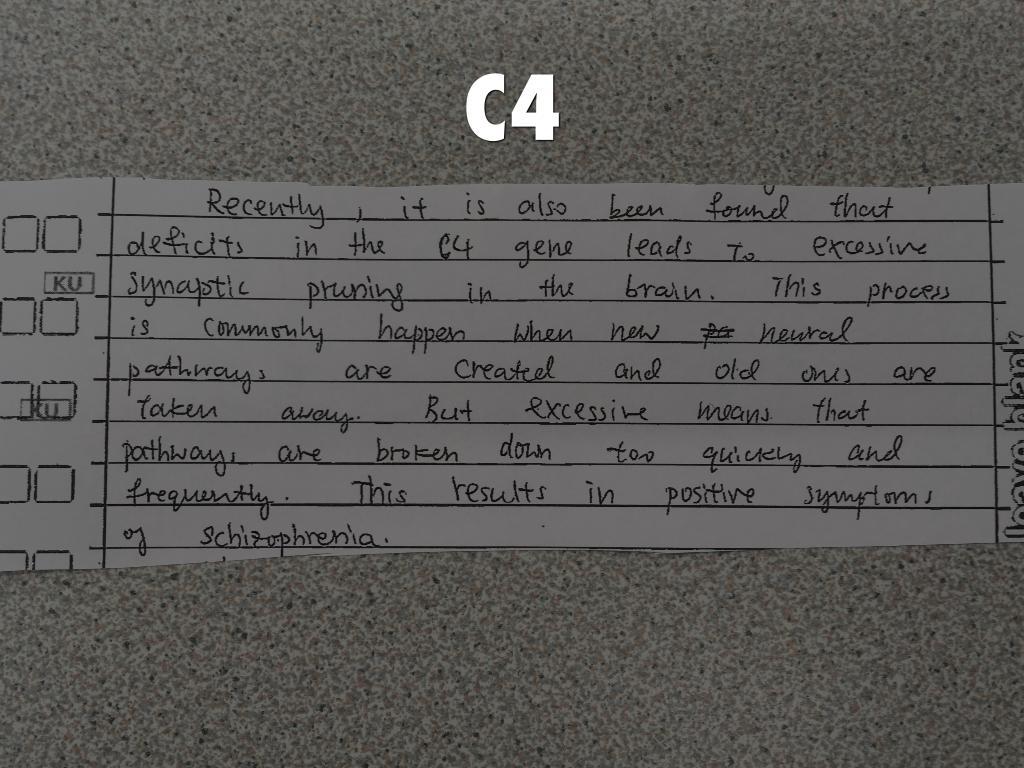 C4
Recently, it is also been found that
deficits in the C4 gene leads To excessive
KU
synaptic pruning in the brain. This process
is commonly happen when new neural
pathways are created and old ones are
KU
taken away. But excessive means that
pathways are broken down too quickly and
frequently. This results in positive symptoms
of schizophrenia.